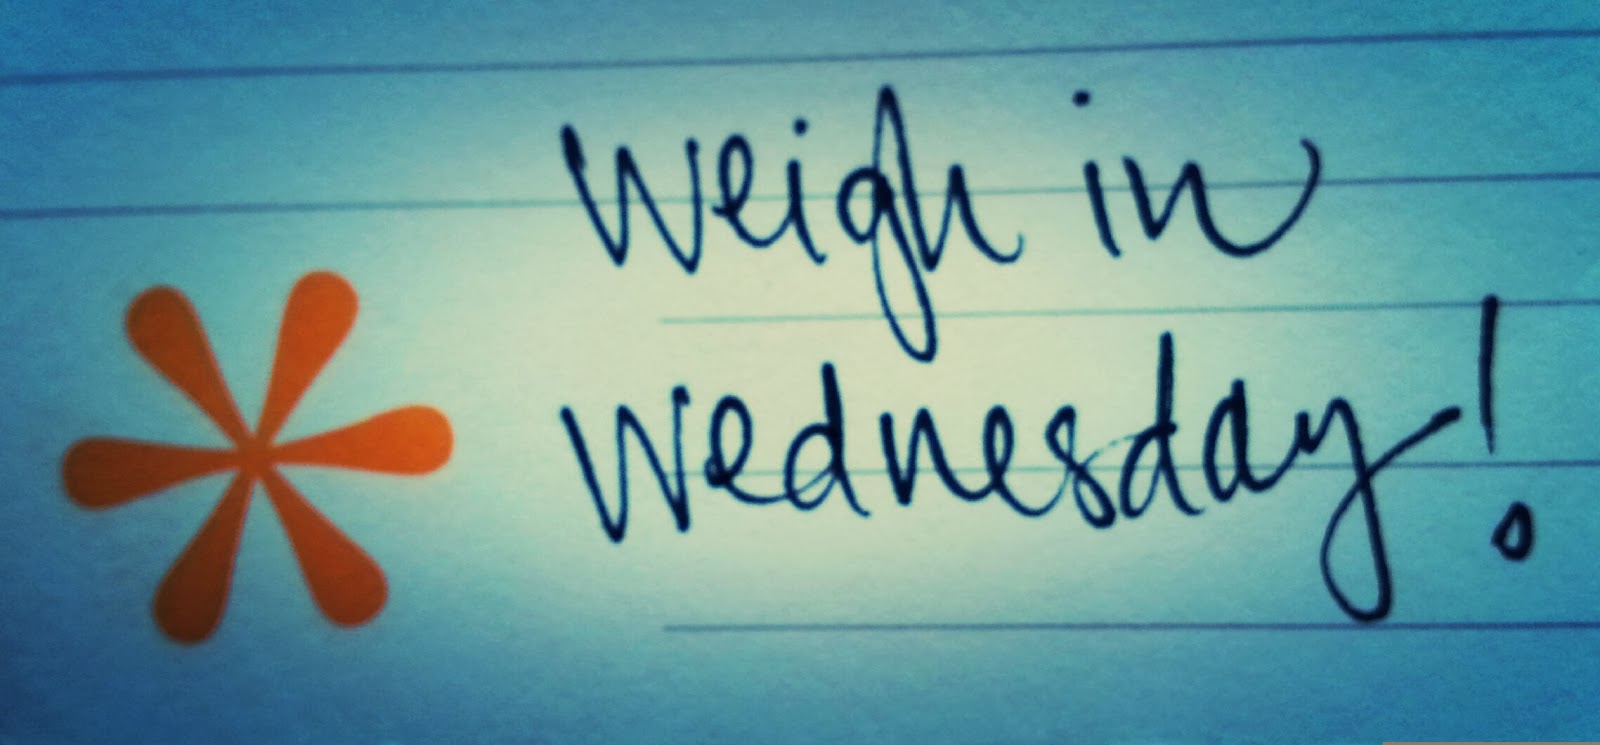 Weigh in
Wednesday!